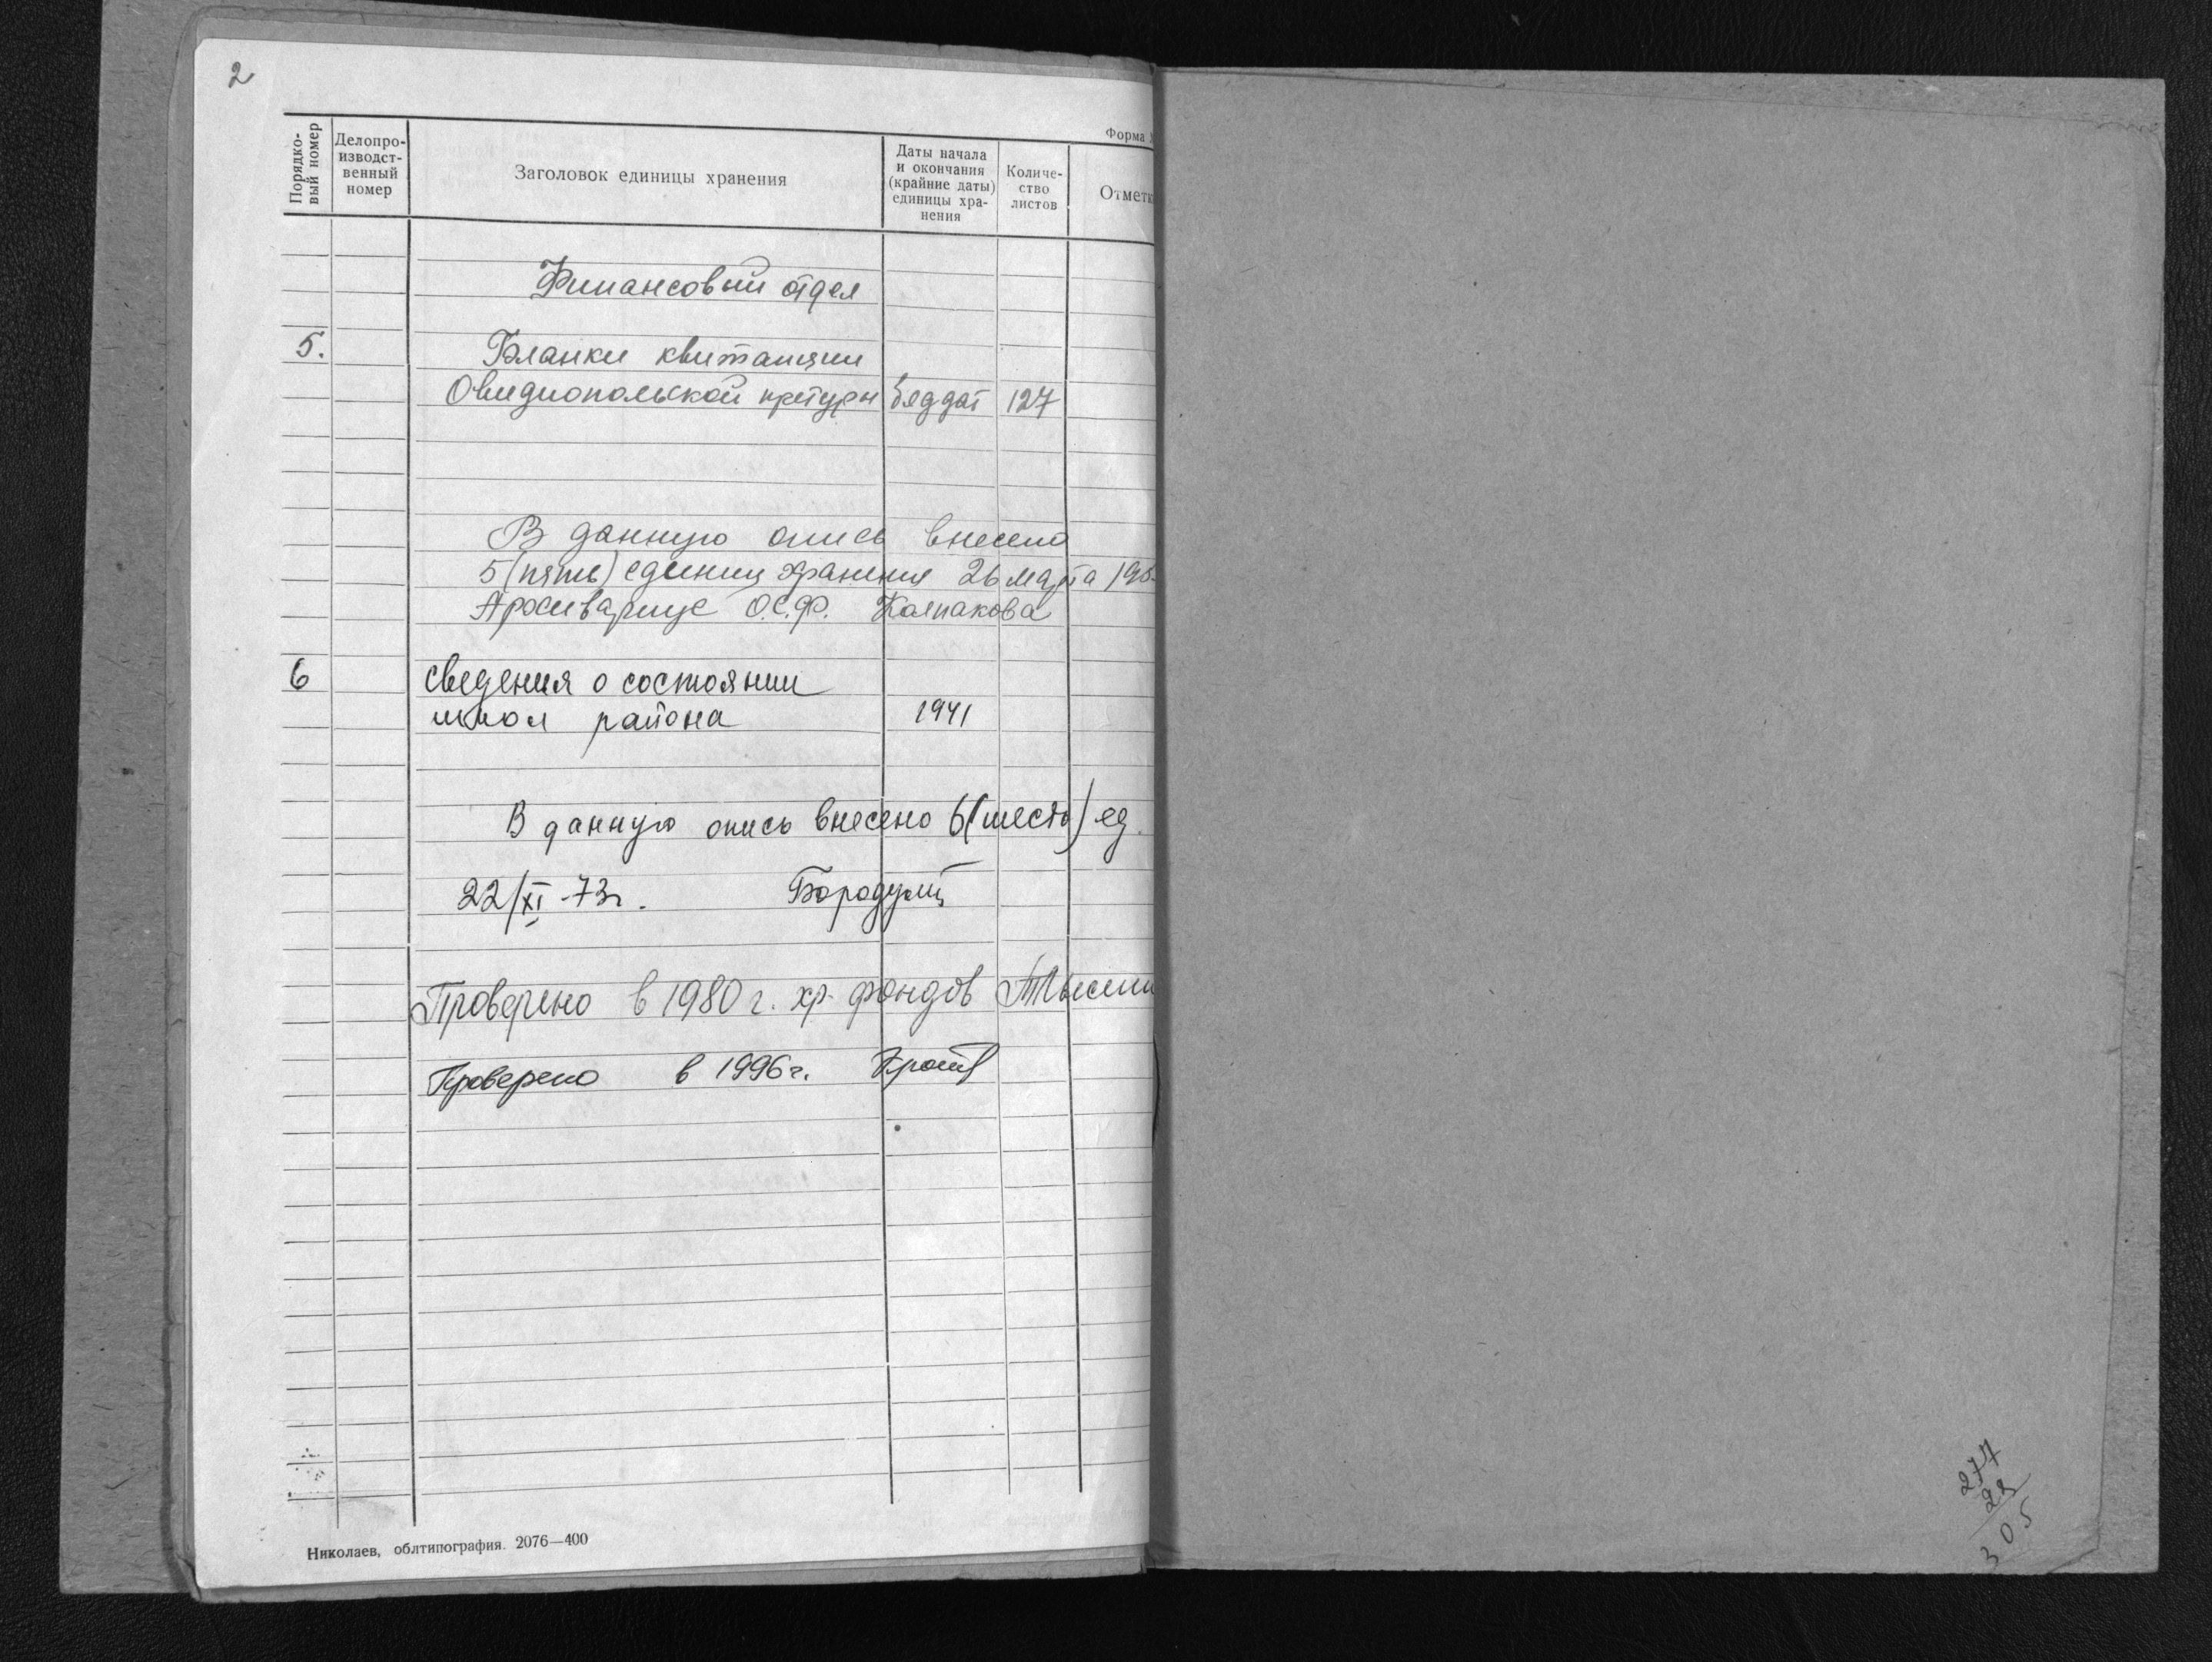 2
Форма
Порядко-
вый номер
Делопро-
изводст-
венный
номер
Заголовок единицы хранения
Даты начала
и окончания
(крайние даты)
единицы хра-
нения
Количе-
ство
листов
Отметк
Финансовый отдел
5. Бланки квитанции
Овидиопольской претуры без дат 127
В данную опись внесено
5 (пять) единиц хранения 26 марта 195
Архивариус О.С.Ф. Колпакова
6 Сведения о состоянии
школ района 1941
В данную опись внесено 6 (шесть) ед.
22/XI-73г.
Проверено в 1980 г. хр. фондов
Проверено в 1996 г.
Николаев, облтипография. 2076—400
277
28
305